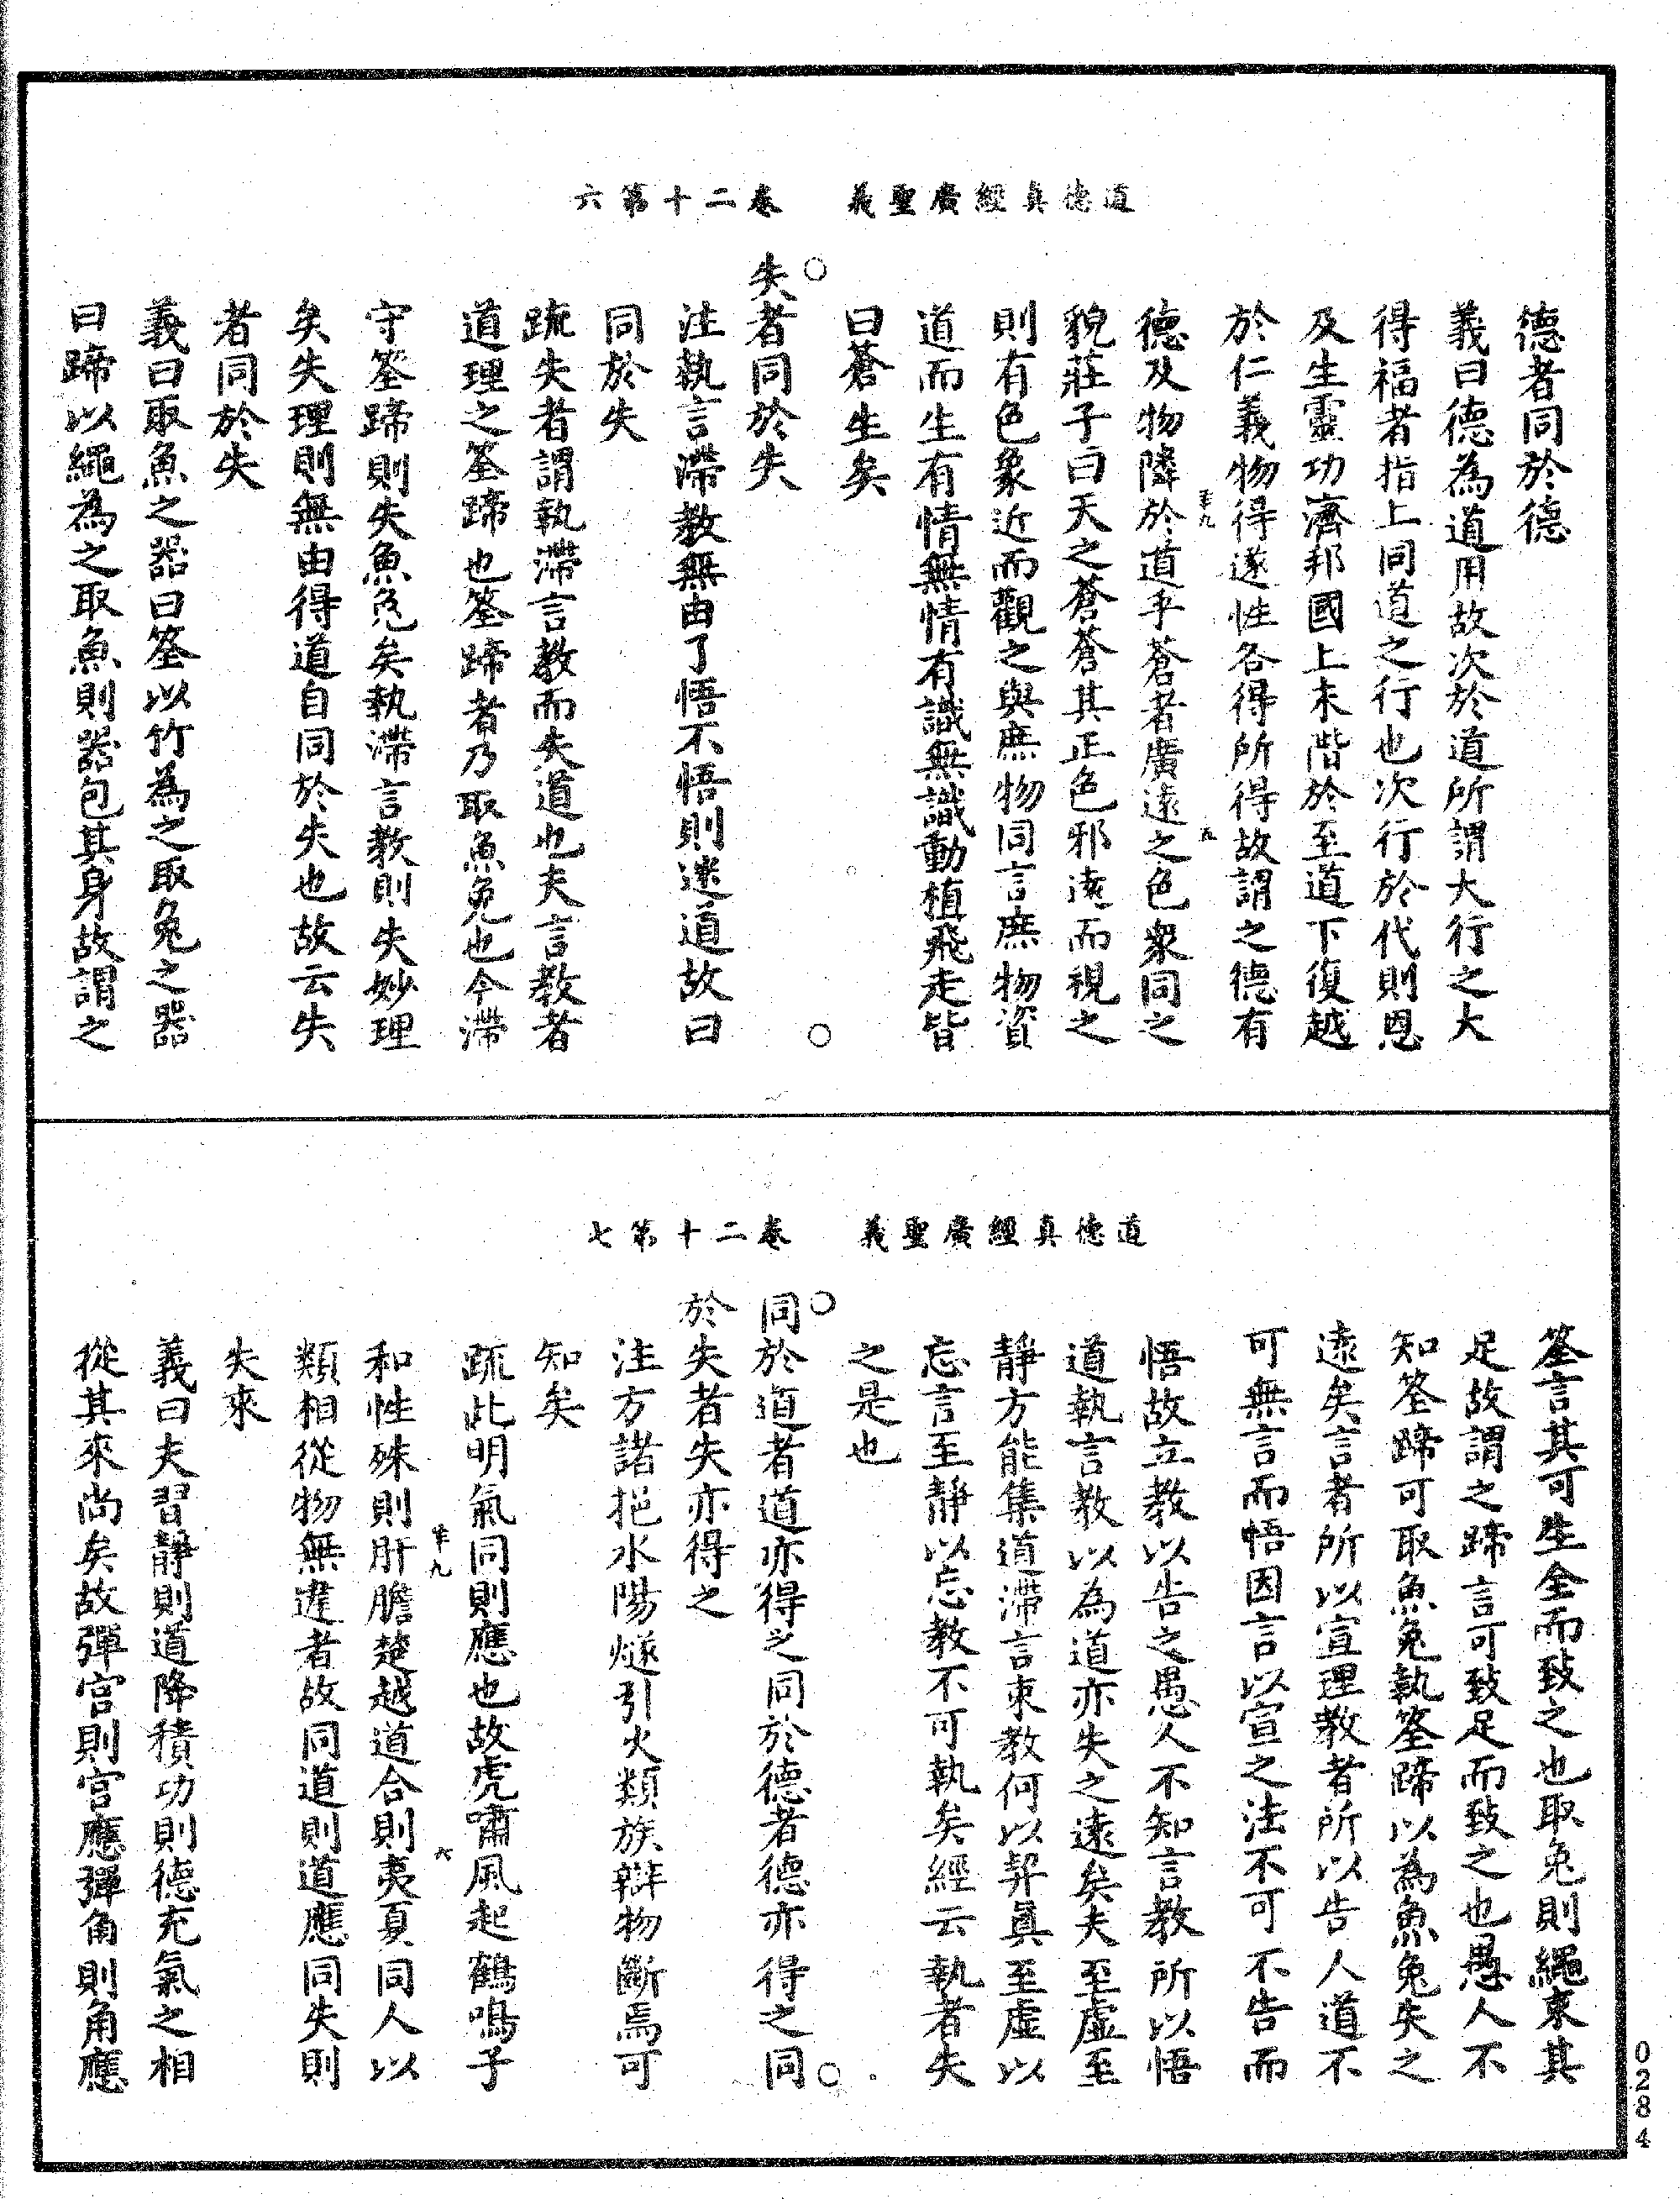 道德真經廣聖義　卷二十第六
德者同於德
義曰德為道用故次於道所謂大行之大
得福者指上同道之行也次行於代則恩
及生靈功濟邦國上未階於至道下復越
於仁義物得遂性各得所得故謂之德有
德及物隣於道乎蒼者廣遠之色衆同之
貌莊子曰天之蒼蒼其正色邪遠而視之
則有色象近而觀之與庶物同言庶物資
道而生有情無情有識無識動植飛走皆
曰蒼生矣
失者同於失
注執言滯教無由了悟不悟則迷道故曰
同於失
疏失者謂執滯言教而失道也夫言教者
道理之筌蹄也筌蹄者乃取魚兔也今滯
守筌蹄則失魚兔矣執滯言教則失妙理
矣失理則無由得道自同於失也故云失
者同於失
義曰取魚之器曰筌以竹為之取兔之器
曰蹄以繩為之取魚則器包其身故謂之
道德真經廣聖義　卷二十第七
筌言其可生全而致之也取兔則繩束其
足故謂之蹄言可致足而致之也愚人不
知筌蹄可取魚兔執筌蹄以為魚兔失之
遠矣言者所以宣理教者所以告人道不
可無言而悟因言以宣之法不可不告而
悟故立教以告之愚人不知言教所以悟
道執言教以為道亦失之遠矣夫至虛至
靜方能集道滯言束教何以契真至虛以
忘言至靜以忘教不可執矣經云執者失
之是也
同於道者道亦得之同於德者德亦得之同
於失者失亦得之
注方諸挹水陽燧引火類族辯物斷焉可
知矣
疏此明氣同則應也故虎嘯風起鶴鳴子
和性殊則肝膽楚越道合則夷夏同人以
類相從物無違者故同道則道應同失則
失來
義曰夫習靜則道降積功則德充氣之相
從其來尚矣故彈宮則宮應彈角則角應
0284